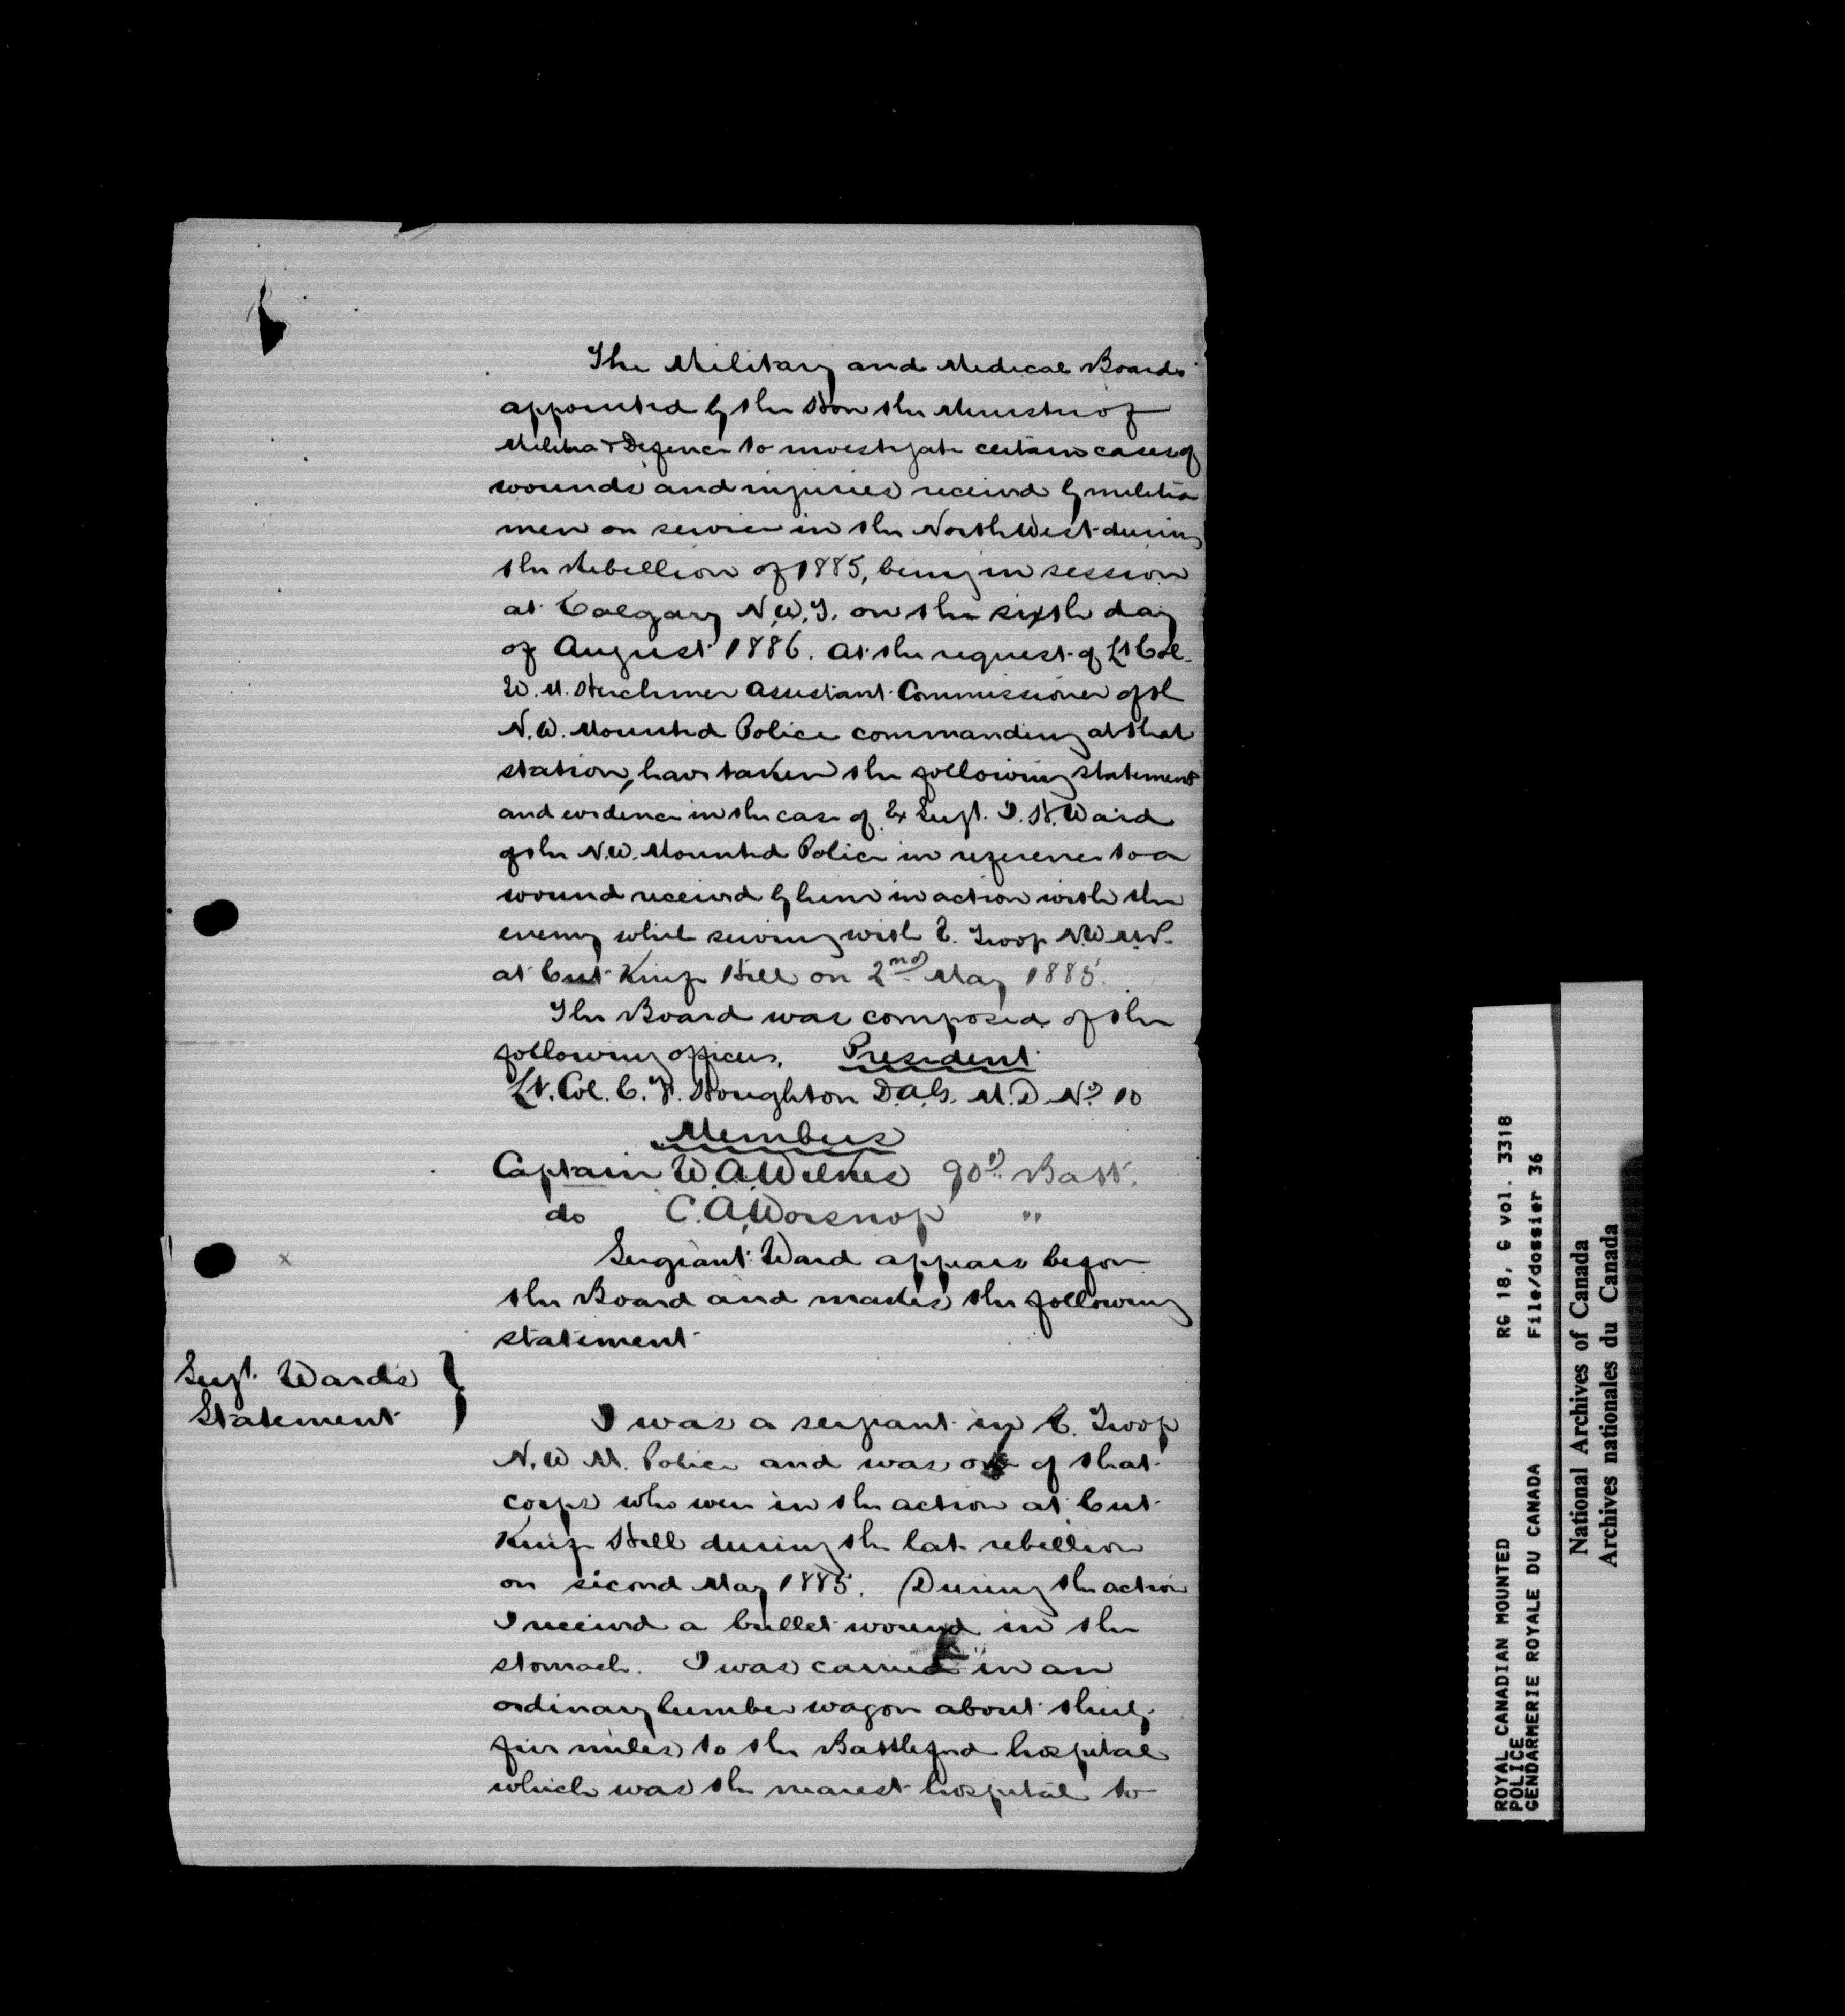 The Military and Medical Boards
appointed by the Hon the Minister of
Militia & Defence to investigate certain cases of
wounds and injuries received by militia
men on service in the North West during
the Rebellion of 1885, being in session
at Calgary N.W.T. on the sixth day
of August 1886. At the request of Lt Col.
W. M. Herchmer Assistant Commissioner of the
N.W. Mounted Police commanding at that
station, have taken the following statement
and evidence in the case of Ex Sergt. J. H. Ward
of the N.W. Mounted Police in reference to a
wound received by him in action with the
enemy while serving with C. Troop N.W.M.P.
at Cut Knife Hill on 2nd May 1885.
The Board was composed of the
following officers. President
Lt. Col. C. F. Houghton D.A.G. M.D. No 10
Members
Captain W. A. Wilkes 90th Batt.
do C. A. Worsnop "
Sergeant Ward appears before
the Board and makes the following
statement
Sergt. Ward's
Statement
I was a sergeant in C. Troop
N.W.M. Police and was one of that
corps who were in the action at Cut
Knife Hill during the late rebellion
on second May 1885. During the action
I received a bullet wound in the
stomach. I was carried in an
ordinary lumber wagon about thirty
five miles to the Battleford hospital
which was the nearest hospital to
ROYAL CANADIAN MOUNTED RG 18, G vol. 3318
POLICE
GENDARMERIE ROYALE DU CANADA File/dossier 36
National Archives of Canada
Archives nationales du Canada